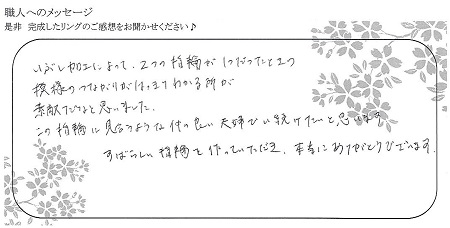 職人へのメッセージ
是非 完成したリングのご感想をお聞かせください♪
いぶし加工によって、2つの指輪が1つだったときの
模様のつながりがはっきりわかる所が
素敵だなと思いました。
この指輪に見合うような仲の良い夫婦でい続けたいと思います。
すばらしい指輪を作っていただき、本当にありがとうございます。